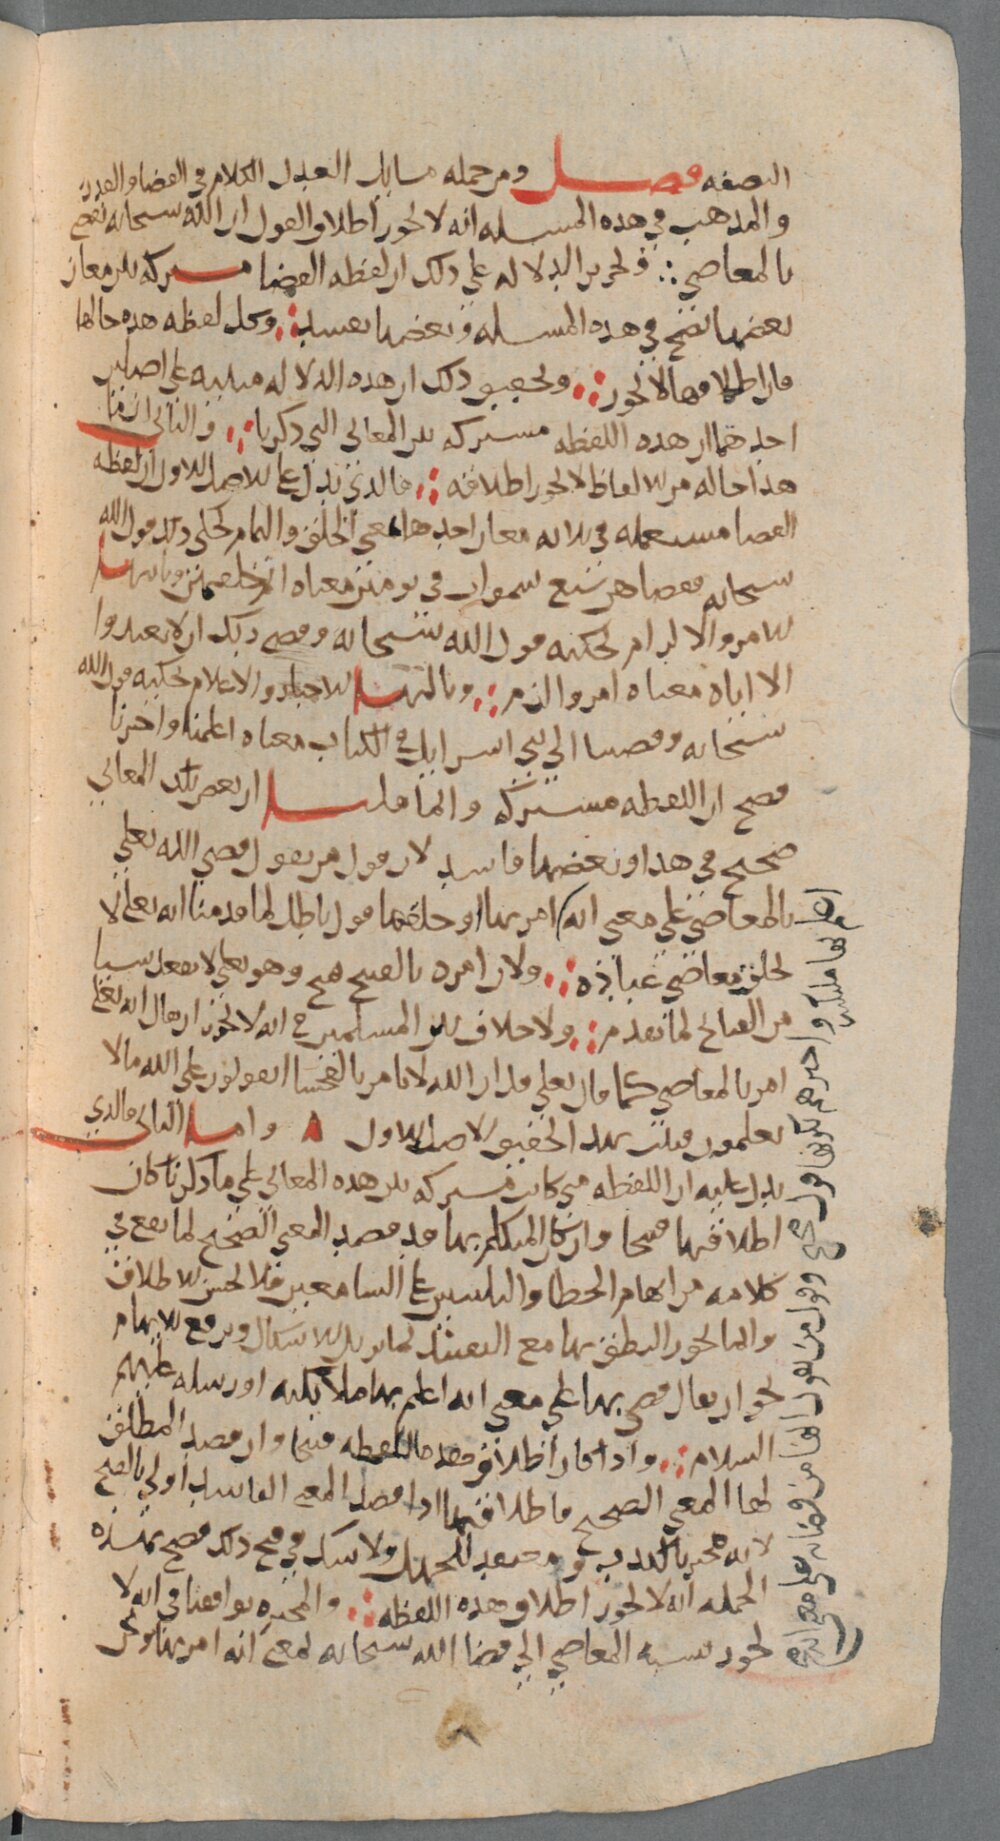 الصفه فصل ومن جمله مسايل العدل الكلام في القضا والقدر
والمذهب في هذه المسله انه لا يجوز اطلاق القول ان الله سبحانه قضى
بالمعاصي ؞ وتحرير الدلاله على ذلك ان لفظه القضا مشتركه بين معان
بعضها يصح في هذه المسله وبعضها يفسد ؞ وكل لفظه هذه حالها
فان اطلاقها لا يجوز ؞ وتحقيق ذلك ان هذه الدلاله مبنيه على اصلين
احدهما ان هذه اللفظه مشتركه بين المعاني التي ذكرنا ؞ والثاني ان ما
هذا حاله من الالفاظ لا يجوز اطلاقه ؞ فالذي يدل على الاصل الاول ان لفظه
القضا مستعمله في ثلاثه معان احدها بمعنى الخلق والتمام يحكي ذلك قول الله
سبحانه فقضاهن سبع سموات في يومين معناه اتم خلقهن وثانيها
الامر والالزام يحكيه قول الله سبحانه وقضى ربك ان لا تعبدوا
الا اياه معناه امر والزم ؞ وثالثها الاخبار والاعلام يحكيه قول الله
سبحانه وقضينا الى بني اسرايل في الكتاب معناه اعلمنا واخبرنا
فصح ان اللفظه مشتركه وانما قلنا ان بعض تلك المعاني
صحيح في هذا وبعضها فاسد لان قول من يقول قضى الله تعلى
بالمعاصي على معنى انه امر بها او خلقها قول باطل لما قدمنا انه تعلى لا
يخلق معاصي عباده ؞ ولان امره بالقبيح قبيح وهو تعلى لا يفعل شيا
من القبائح لما تقدم ؞ ولا خلاف بين المسلمين في انه لا يجوز ان يقال انه تعلى
امر بالمعاصي كما قال تعلى قل ان الله لا يامر بالفحشا اتقولون على الله ما لا
تعلمون فثبت بهذا تحقيق الاصل الاول واما الثاني فالذي
يدل عليه ان اللفظه متى كانت مشتركه بين هذه المعاني على ما ذكرنا كان
اطلاقها قبيحا وان كان المتكلم بها قد قصد المعنى الصحيح لما يقع في
كلامه من ايهام الخطا والتلبيس على السامعين فلا يحسن الاطلاق
وانما يجوز النطق بها مع التقييد لما يزيل الاشكال ويرفع الايهام
نحو ان يقال قضى بها على معنى انه اعلم بها ملائكته او رسله عليهم
السلام ؞ واذا كان اطلاق هذه اللفظه قبيحا وان قصد المطلق
لها المعنى الصحيح فاطلاقها اذا قصد المعنى الفاسد اولى بالقبح
لانه مخبر بالكذب ومعتقد للجهل ولا شك في قبح ذلك فصح بهذه
الجمله انه لا يجوز اطلاق هذه اللفظه ؞ والمجبره توافقنا في انه لا
يجوز نسبه المعاصي الى قضا الله سبحانه بمعنى انه امر بها
وقول من يقول انها من قضائه على معنى انه
اعلم بها ملائكته واخبرهم بكونها قول صحيح